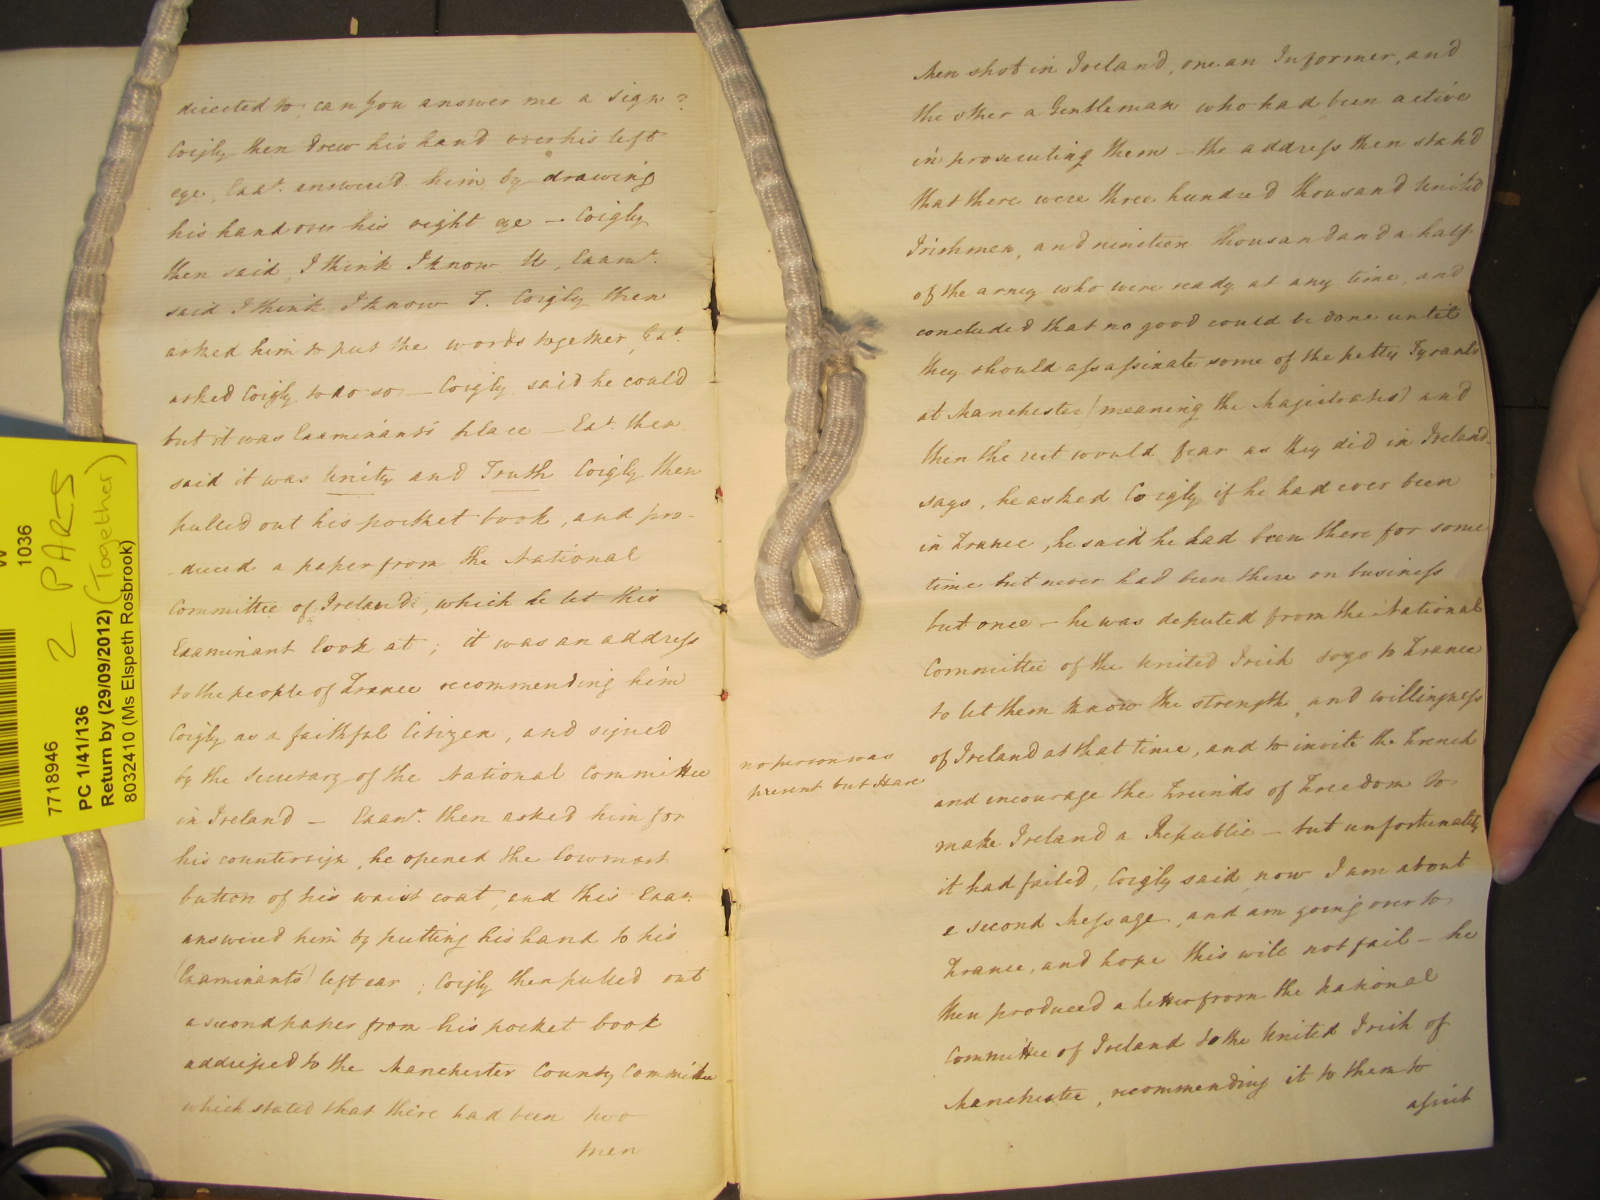 directed to, can you answer me a sign?
Coigly then drew his hand over his left
eye, Exat. answered him by drawing
his hand over his right eye — Coigly
then said, I think I know U, Examt.
said I think I know T. Coigly then
asked him to put the words together, Ext.
asked Coigly to do so — Coigly said he could
but it was Examinants place — Ext. then
said it was Unity and Truth Coigly then
pulled out his pocket book, and pro-
-duced a paper from the National
Committee of Ireland, which he let this
Examinant look at; it was an address
to the people of France recommending him
Coigly as a faithful Citizen, and signed
by the Secretary of the National Committee
in Ireland — Exant. then asked him for
his countersign, he opened the lowmost
button of his waist coat, and this Exan
answered him by putting his hand to his
(Examinants) left ear; Coigly then pulled out
a second paper from his pocket book
addressed to the Manchester County Committee
which stated that there had been two
men
no person was
present but
Men shot in Ireland, one an Informer, and
the other a Gentleman who had been active
in prosecuting them — the address then stated
that there were three hundred thousand United
Irishmen, and nineteen thousand and a half
of the army who were ready at any time, and
concluded that no good could be done until
they should assassinate some of the petty Tyrants
at Manchester (meaning the Magistrates) and
then the rest would fear as they did in Ireland.
says, he asked Coigly if he had ever been
in France, he said he had been there for some
time but never had been there on business
but once — he was deputed from the National
Committee of the United Irish to go to France
to let them know the strength, and willingness
of Ireland at that time, and to invite the French
and encourage the Freinds of Freedom to
make Ireland a Republic — but unfortunately
it had failed, Coigly said now I am about
a second Message, and am going over to
France, and hope this will not fail — he
then produced a letter from the National
Committee of Ireland to the United Irish of
Manchester, recommending it to them to
assist
W
1036
2 PARTS
(Together)
7718946
PC 1/41/136
Return by (29/09/2012)
8032410 (Ms Elspeth Rosbrook)